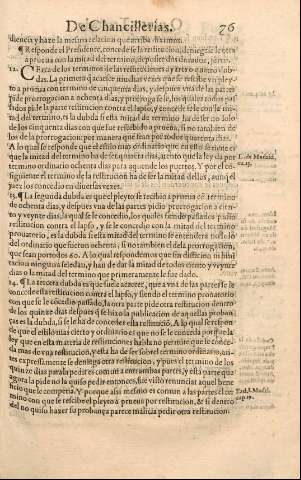 De Chancillerias. 76
diencia y haze la mesma relacion que arriba diximos.
¶ Responde el Presidente, concedese la restitucion, deniegase le otra
a prueua con la mitad del termino,
12. Cerca de los terminos de las restituciones ay tres o quatro
das. La primera q acaesce muchas vezes que se rescibe vn pley
to a prueua con termino de cinquenta dias, y despues vna de las partes
pide prorrogacion a ochenta dias, y prorrogasele, los quales todos passados
la otra parte pide restitucion contra el lapso, y concedesele con la mi-
tad del termino, es la dubda si esta mitad del termino ha de ser no solo
de los cinquenta dias con que fue rescebido a prueua, si no tambien de
los de la prorrogacion por manera que sean por todos quarenta dias.
A lo qual se responde que el estilo mas ordinario que en esto se tiene es
que la mitad del termino ha de ser quarenta dias, atento que la ley da por
termino ordinario ochenta dias para aquende los puertos. Y por el con
siguiente el termino de la restitucion ha de ser la mitad dellos, aunq el
juez los concedio en diuersas vezes.
L. de Madrid.
cap. 19.
13. ¶ La segunda dubda es que el pleyto se rescibio a prueua cō termino
de ochenta dias, y despues vna de las partes pidio prorrogacion a cien-
to y veynte dias, la qual se le concedio, los quales siendo passados
restitucion contra el lapso, y se le concedio con la mitad del termino
prouatorio, es la dubda si esta mitad se ha de entender
del ordinario que fueron ochenta, si no tambien el de la prorrogacion,
que sean por todos 60. A lo qual respondemos
tacion ninguna se le da, y han de dar la mitad de todos ciento y veynte
dias o la mitad del termino que primeramente le fue dado.
14. ¶ La tercera dubda es que suele acaecer, que a vna de las partes se le
concede la restitucion contra el lapso, y siendo el termino prouatorio
con que se le cōcedio passado, la otra parte pide otra restitucion dentro
de los quinze dias despues q se hizo la publicacion de aquellas proban
ças es la dubda, si se le ha de conceder esta restitucion. A lo qual se respon
de que el estilo mas cierto y ordinario es que no se le conceda porque la
ley que en esta materia de restituciones habla no permite que se conce
da mas de vna restitucion, y esta ha de ser sobre el termino ordinario, an
tes expressamente se deniega otra restitucion, y pues el termino de los
quinze dias para la pedir es comun a entrambas partes, y esta parte que
agora la pide no la quiso pedir entonces, fue visto renunciar aquel bene
ficio que le competia. Y porque assi mesmo es comun a las partes el ter
mino con que se rescibe el pleyto a prueua por restitucion, & si dentro
del no quiso hazer su probança parece malicia pedir otra restitucion.
cap. 19.